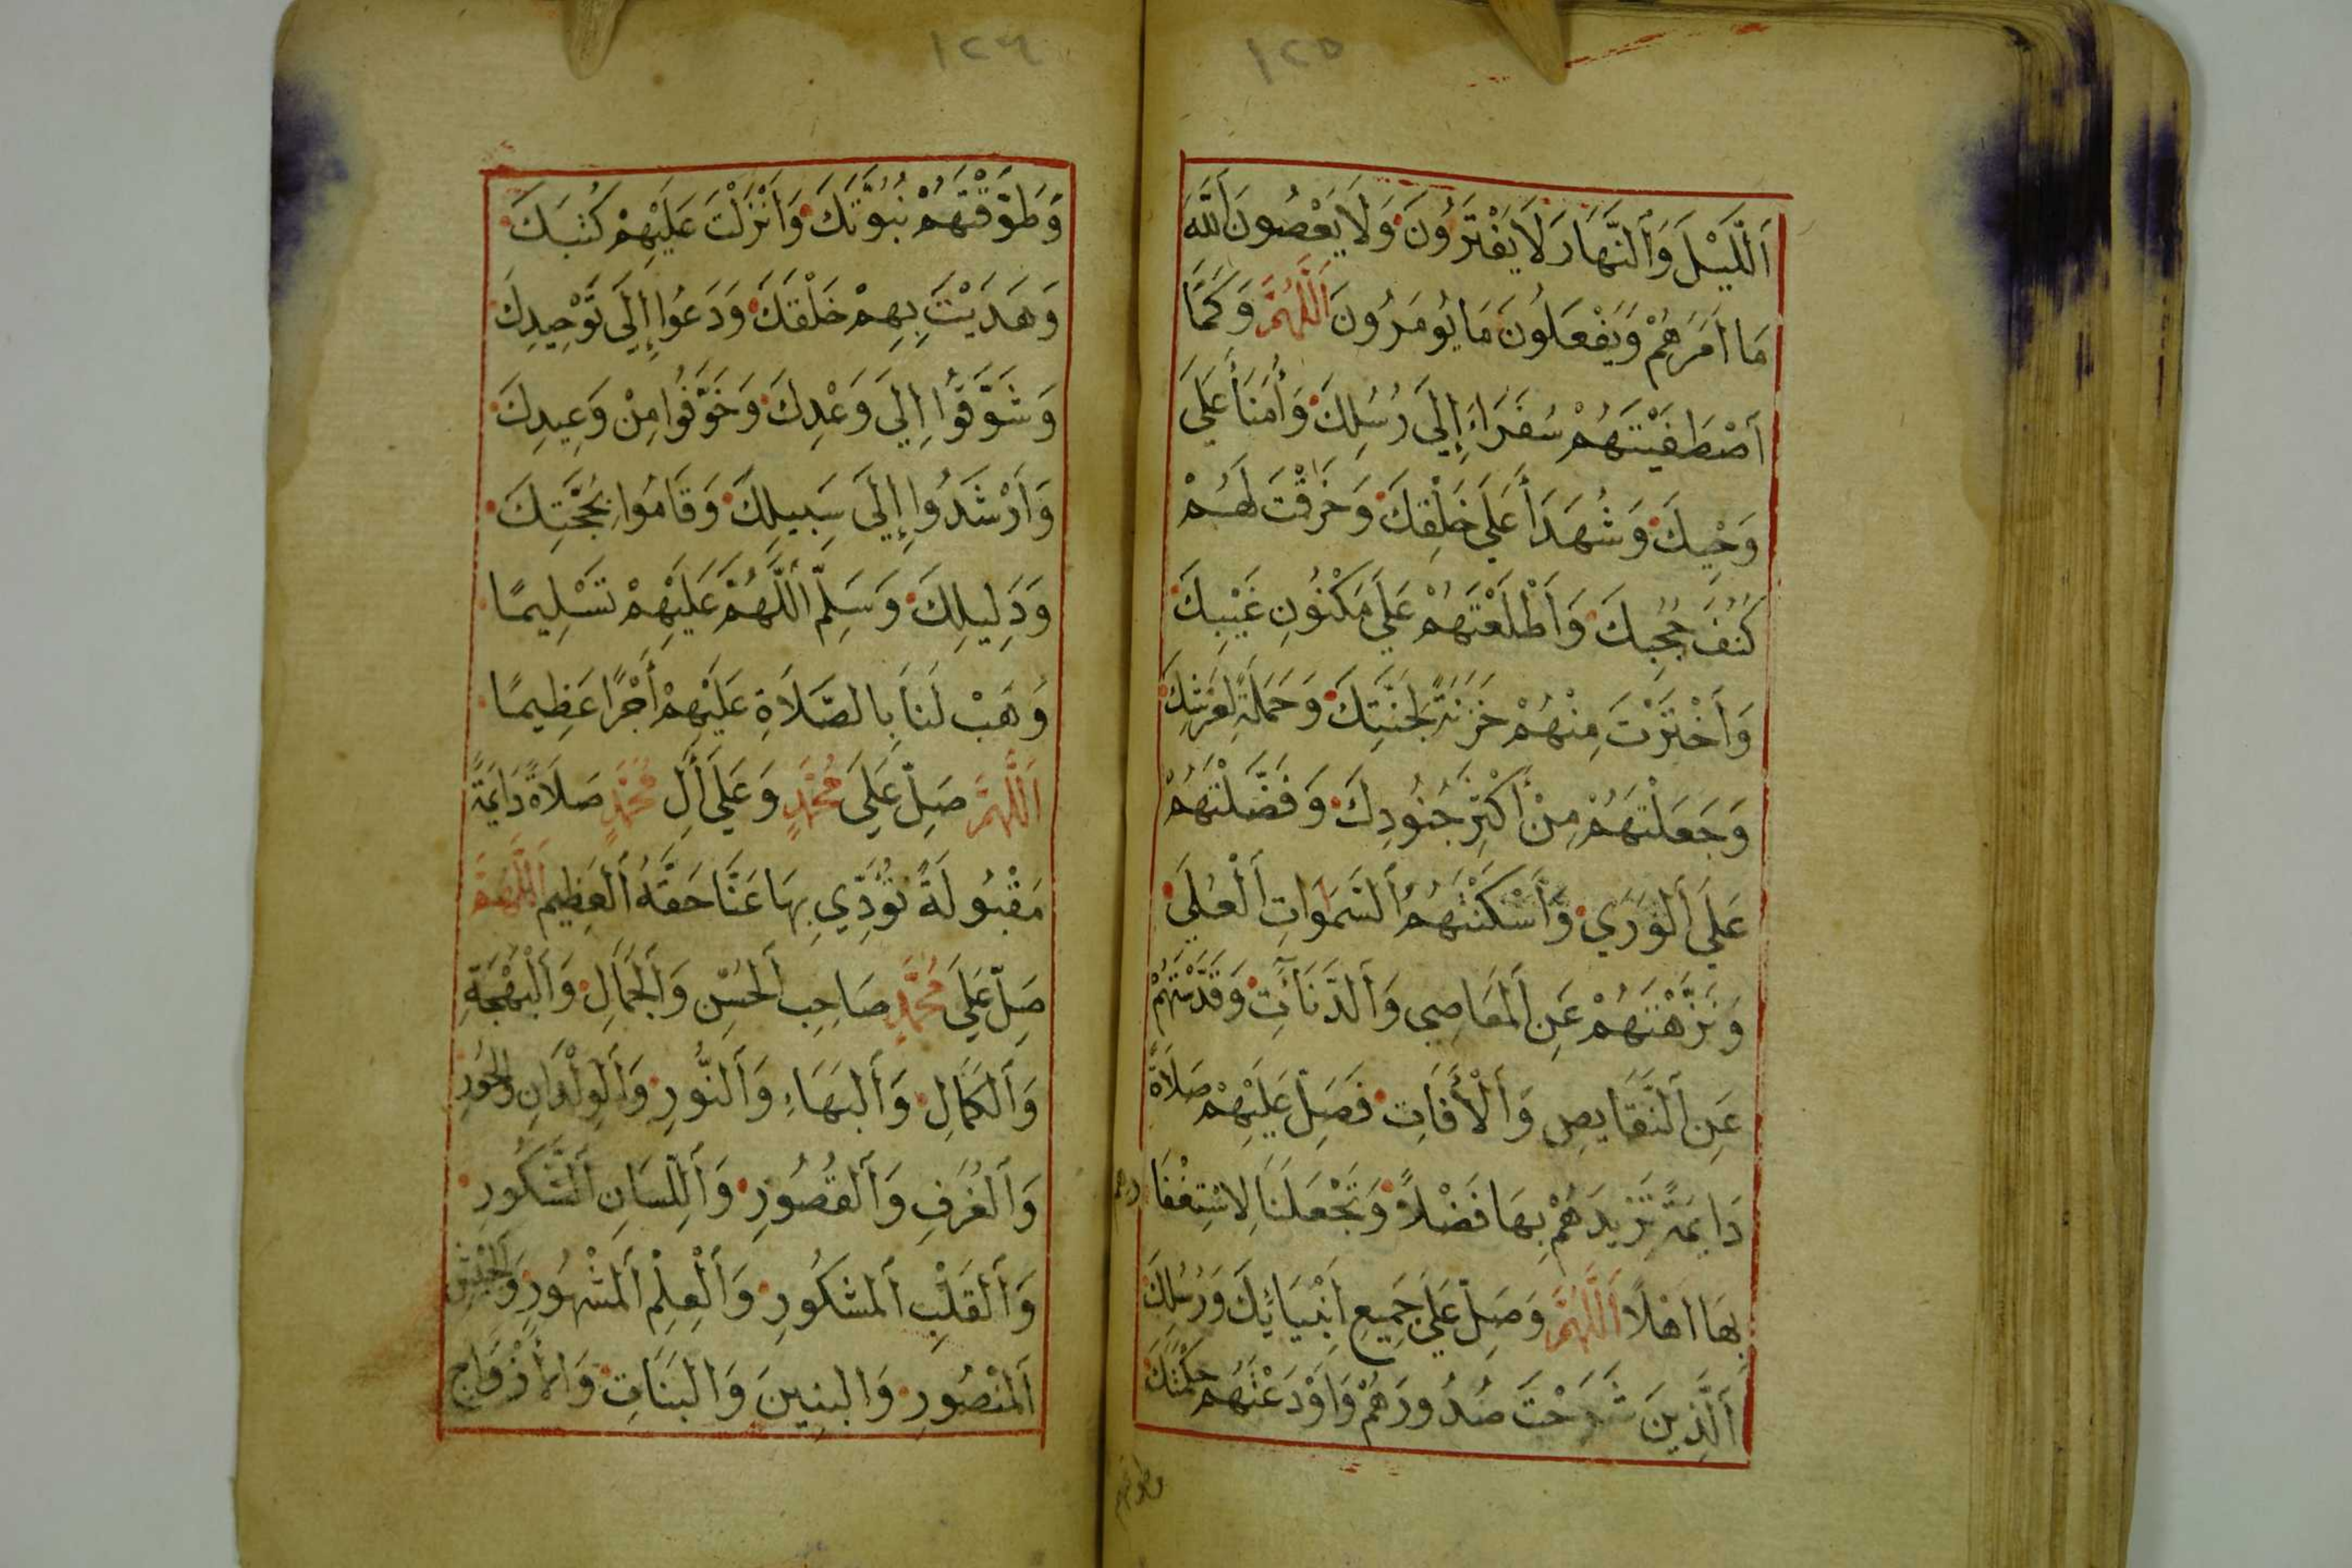 ١٢٥
اَللَّيْلَ وَاَلنَّهَارَ لَا يَفْتَرُونَ وَلَا يَعْصُونَ اَللَّهَ
مَا اَمَرَهُمْ وَيَفْعَلُونَ مَا يُومَرُونَ اَللَّهُمَّ وَكَمَا
اَصْطَفَيْتَهُمْ سُفَرَاءَ إِلَى رُسُلِكَ وَأُمَنَأَ عَلَى
وَحْيِكَ وَشُهَدَأَ عَلَى خَلْقِكَ وَخَرَقْتَ لَهُمْ
كُنُفَ حُجُبِكَ وَأَطْلَعْتَهُمْ عَلَى مَكْنُونِ غَيْبِكَ
وَاَخْتَرْتَ مِنْهُمْ خَزَنَةً لِجَنَّتِكَ وَحَمَلَةً لِعَرْشِكَ
وَجَعَلْتَهُمْ مِنْ أَكْثَرِ جُنُودِكَ وَفَضَّلْتَهُمْ
عَلَى اَلْوَرَي وَأَسْكَنْتَهُمُ اَلسَّمَوَاتِ اَلْعُلَى
وَنَزَّهْتَهُمْ عَنِ اَلْمَعَاصِي وَاَلدَّنَآتِ وَقَدَّسْتَهُمْ
عَنِ اَلنَّقَايِصِ وَاَلْأَفَاتِ فَصَلِّ عَلَيْهِمْ صَلَاةً
دَايِمَةً تَزِيدُهُمْ بِهَا فَضْلًا وَتَجْعَلُنَا لِاسْتِغْفَارِهِمْ
بِهَا اَهْلًا اَللَّهُمَّ وَصَلِّ عَلَى جَمِيعِ اَنْبِيَائِكَ وَرُسُلِكَ
اَلَّذِينَ شَرَحْتَ صُدُورَهُمْ وَاَوْدَعْتَهُمْ حِكْمَتَكَ
وطوقتهم
١٢٦
وَطَوَّقْتَهُمْ نُبُوَّتَكَ وَاَنْزَلْتَ عَلَيْهِمْ كُتُبَكَ
وَهَدَيْتَ بِهِمْ خَلْقَكَ وَدَعَوْا إِلَى تَوْحِيدِكَ
وَشَوَّقُوا إِلَي وَعْدِكَ وَخَوَّفُوا مِنْ وَعِيدِكَ
وَاَرْشَدُوا إِلَى سَبِيلِكَ وَقَامُوا بِحُجَّتِكَ
وَدَلِيلِكَ وَسَلِّمْ اَللَّهُمَّ عَلَيْهِمْ تَسْلِيمًا
وَهَبْ لَنَا بِالصَّلَاةِ عَلَيْهِمْ أَجْرًا عَظِيمًا
اَللَّهُمَّ صَلِّ عَلَى مُحَمَّدٍ وَعَلَى أَلِ مُحَمَّدٍ صَلَاةً دَايِمَةً
مَقْبُولَةً تُؤَدِّي بِهَا عَنَّا حَقَّهُ اَلْعَظِيمِ اَللَّهُمَّ
صَلِّ عَلَى مُحَمَّدٍ صَاحِبِ اَلْحُسْنِ وَاَلْجَمَالِ وَاَلْبَهْجَةِ
وَاَلْكَمَالِ وَاَلْبَهَاءِ وَاَلنُّورِ وَاَلْوِلْدَانِ وَالْحُورِ
وَاَلْغُرَفِ وَاَلْقُصُورِ وَاَللِّسَانِ اَلشَّكُورِ
وَاَلْقَلْبِ اَلْمَشْكُورِ وَاَلْعِلْمِ اَلْمَشْهُورِ وَاَلْجَيْشِ
اَلْمَنْصُورِ وَالْبَنِينَ وَالْبَنَاتِ وَالْأَزْوَاجِ